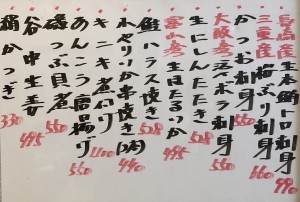 長崎産 生本鮪トロ刺身 990
三重産 梅ぶり刺身 660
かつお刺身 550
大阪産 活〆ホラ刺身
生にしんたたき 528
富山産 生ほたるいか 495
鮭ハラス焼き 528
小やりいか串焼き(2本) 440
キンキ煮付け 1100
あんこう唐揚げ 550
磯つぶ貝煮 550
谷中生姜 495
稲かつぎ 330